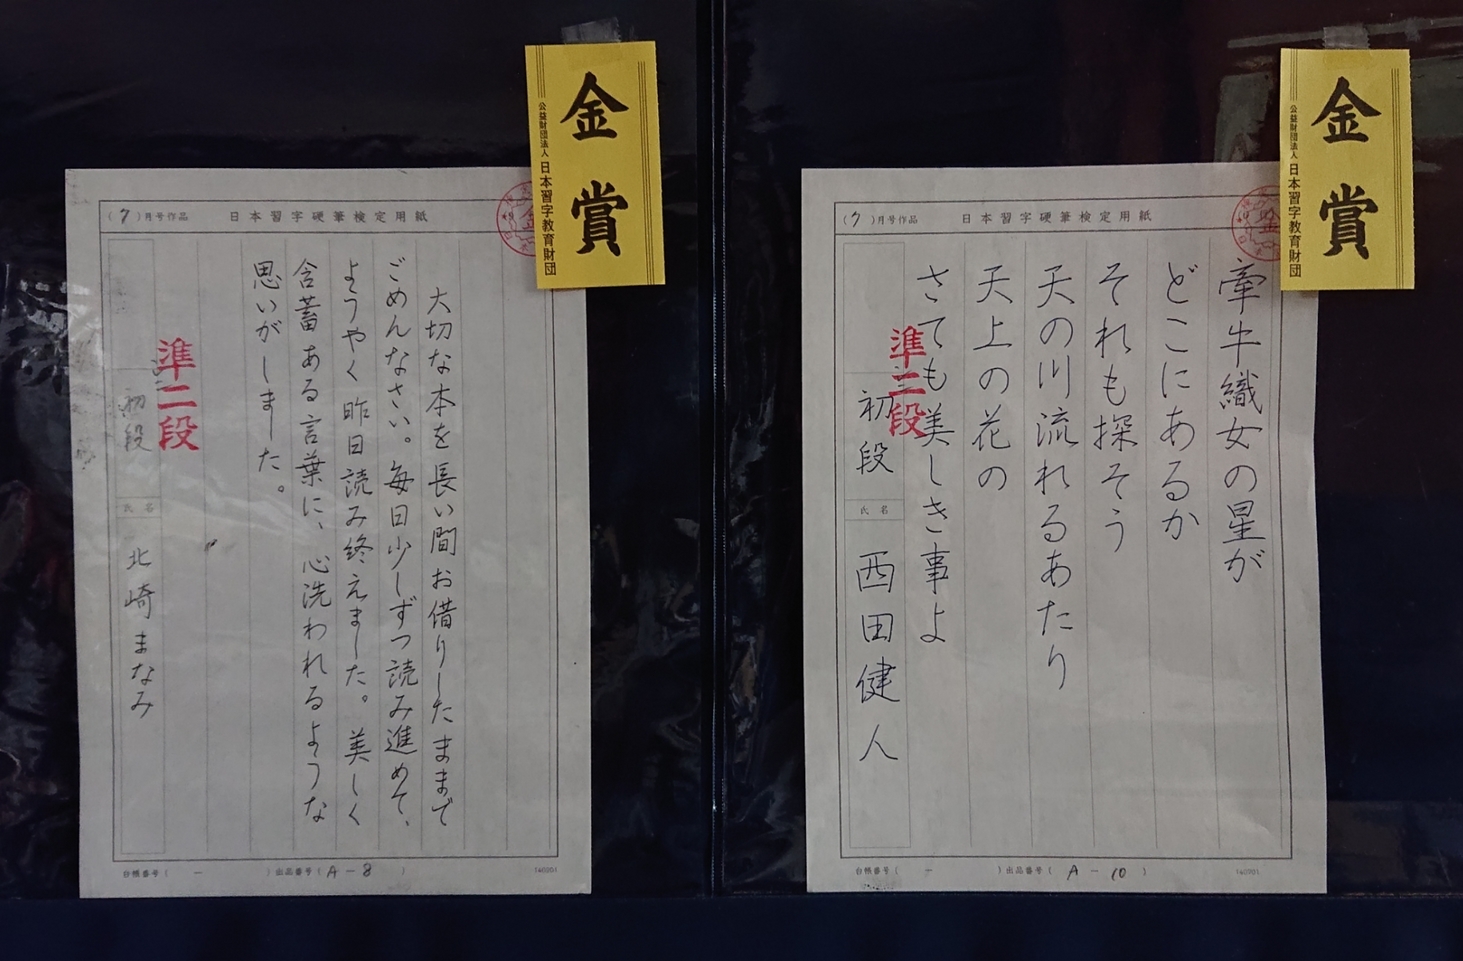 金賞
公益財団法人 日本習字教育財団
(7)月号作品 日本習字硬筆検定用紙
大切な本を長い間お借りしたままで
ごめんなさい。毎日少しずつ読み進めて、
ようやく昨日読み終えました。美しく
含蓄ある言葉に、心洗われるような
思いがしました。
準二段
初段
氏名
北崎まなみ
台帳番号( ー )出品番号(A-8)
金賞
公益財団法人 日本習字教育財団
(7)月号作品 日本習字硬筆検定用紙
牽牛織女の星が
どこにあるか
それも探そう
天の川流れるあたり
天上の花の
さても美しき事よ
準二段
初段
氏名
西田健人
台帳番号( ー )出品番号(A-10)